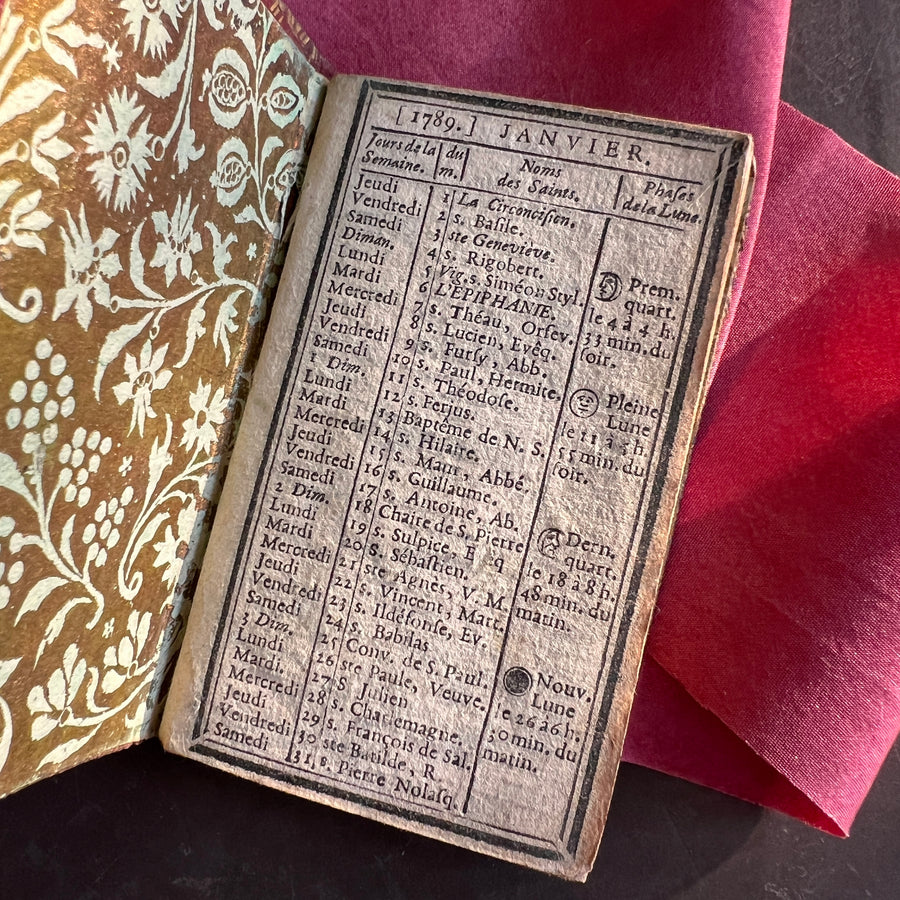 [ 1789. ] JANVIER.
Jours de la Semaine. du m. Noms des Saints. Phaſes de la Lune.
Jeudi 1 La Circonciſion.
Vendredi 2 s. Baſile.
Samedi 3 ste Geneviève.
Diman. 4 s. Rigobert.
Lundi 5 Vig. s. Siméon Styl.
Mardi 6 L'EPIPHANIE.
Mercredi 7 s. Théau, Orfev.
Jeudi 8 s. Lucien, Evêq.
Vendredi 9 s. Furſy, Abb.
Samedi 10 s. Paul, Hermite.
1 Dim. 11 s. Théodoſe.
Lundi 12 s. Ferjus.
Mardi 13 Baptême de N. S.
Mercredi 14 s. Hilaire.
Jeudi 15 s. Maur, Abbé.
Vendredi 16 s. Guillaume.
Samedi 17 s. Antoine, Ab.
2 Dim. 18 Chaire de S. Pierre
Lundi 19 s. Sulpice, E cq
Mardi 20 S. Sébaſtien.
Mercredi 21 ste Agnès, V. M.
Jeudi 22 s. Vincent, Mart.
Vendredi 23 s. Ildéfonſe, Ev.
Samedi 24 s. Babilas
3 Dim. 25 Conv. de S. Paul.
Lundi 26 ste Paule, Veuve.
Mardi. 27 S Julien
Mercredi 28 s. Charlemagne.
Jeudi 29 s. François de Sal.
Vendredi 30 ste Batilde, R.
Samedi 31 s. Pierre Nolaſq.
Prem.
quart.
le 4 à 4 h
33 min. du
ſoir.
Pleine
Lune
le 11 à 5 h
55 min. du
ſoir.
Dern.
quart.
le 18 à 8 h.
48 min. du
matin.
Nouv.
Lune
le 26 à 6 h.
30 min. du
matin.